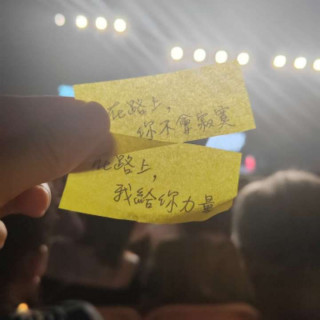 在路上,
你不會寂寞
在路上,
我給你力量